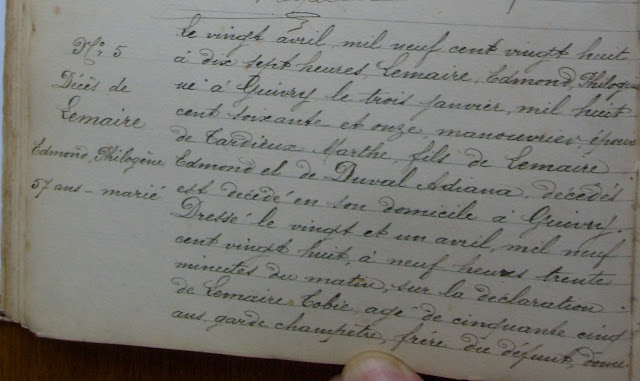 N° 5
Décès de
Lemaire
Edmond, Philogène
57 ans - marié
Le vingt avril, mil neuf cent vingt huit
à dix sept heures, Lemaire, Edmond, Philogène
né à Guivry le trois janvier, mil huit
cent soixante et onze, manouvrier, époux
de Tardieux Marthe, fils de Lemaire
Edmond et de Duval Adiana, décédés
est décédé en son domicile à Guivry.
Dressé le vingt et un avril, mil neuf
cent vingt huit, à neuf heures trente
minutes du matin, sur la déclaration
de Lemaire Tobie, agé de cinquante cinq
ans garde champêtre, frère du défunt, domi